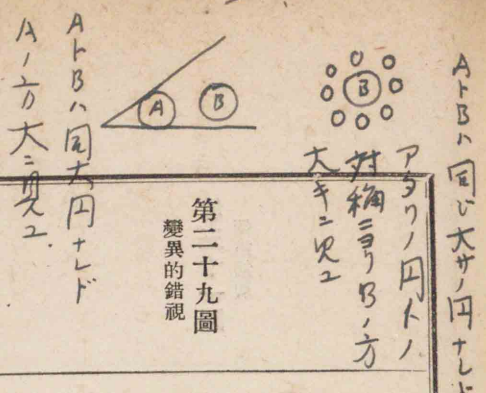 AトBハ同じ大サノ円ナレド
アタリノ円トノ
対稱ニヨリBノ方
大キニ見ユ
B
A
B
AトBハ同大円ナレド
Aノ方大ニ見ユ.
第二十九圖
變異的錯視